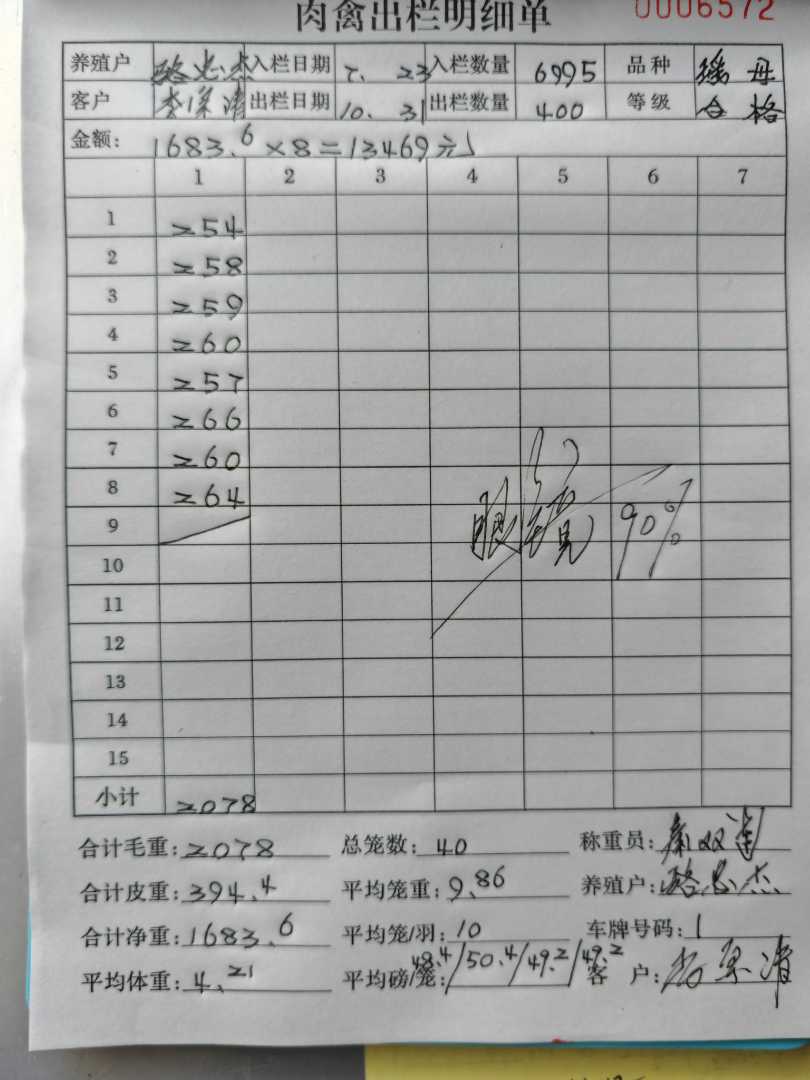 肉禽出栏明细单 0006572
养殖户 路忠杰 入栏日期 7. 23 入栏数量 6995 品种 瑶母
客户 李深清 出栏日期 10. 31 出栏数量 400 等级 合格
金额: 1683.6×8=13469元
1 2 3 4 5 6 7
1 254
2 258
3 259
4 260
5 257
6 266
7 260
8 264
9 眼镜 90%
10
11
12
13
14
15
小计 2078
合计毛重: 2078 总笼数: 40 称重员:
合计皮重: 394.4 平均笼重: 9.86 养殖户: 路忠杰
合计净重: 1683.6 平均笼/羽: 10 车牌号码: 1
平均体重: 4.21 平均磅/笼: 48.4/50.4/49.2/49.2 客 户: